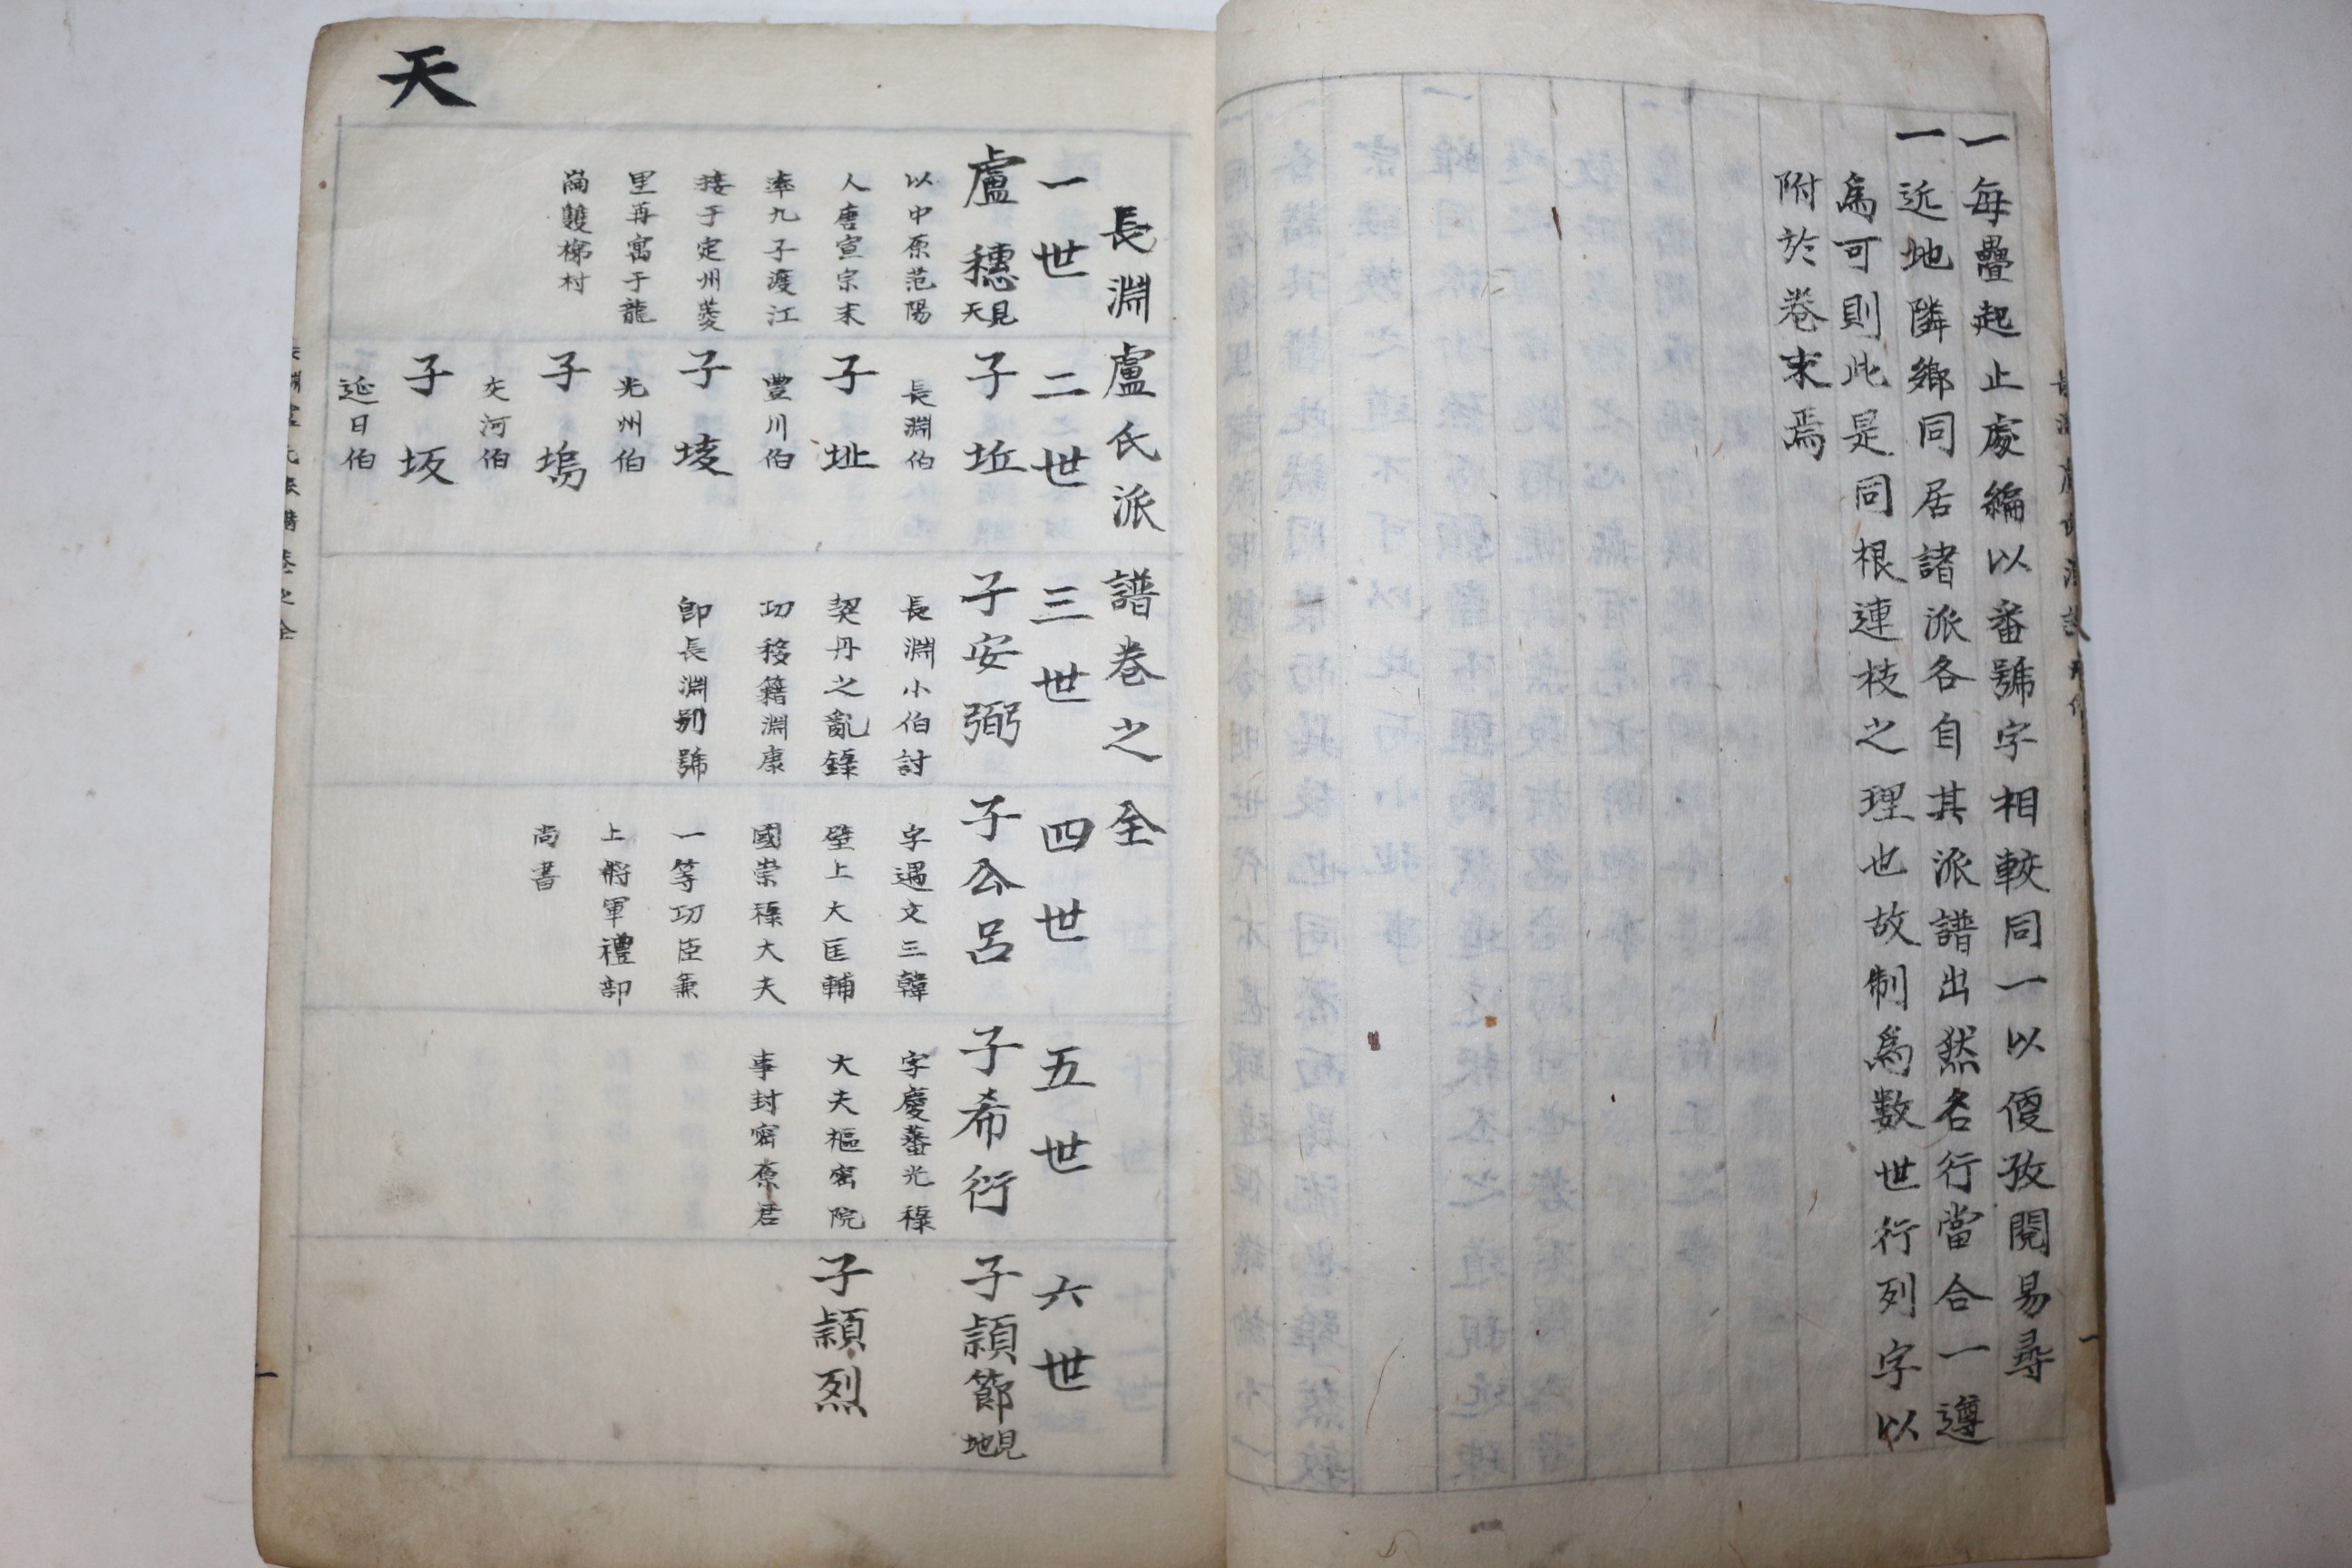 一每疊起止處編以番號字相較同一以便孜閱易尋
一近地隣鄉同居諸派各自其派譜出然名行當合一遵
爲可則此是同根連枝之理也故制爲數世行列字以
附於卷末焉
天
長淵盧氏派譜卷之全
一世
二世
三世
四世
五世
六世
盧穗
見天
以中原范陽
人唐宣宗末
率九子渡江
接于定州菱
里再寓于龍
崗雙梯村
子坵
長淵伯
子址
豊川伯
子堎
光州伯
子塢
交河伯
子坂
延日伯
子安弼
長淵小伯討
契丹之亂錄
功移籍淵康
卽長淵別號
子公呂
字遇文三韓
壁上大匡輔
國崇祿大夫
一等功臣兼
上將軍禮部
尚書
子希衍
字慶蕃光祿
大夫樞密院
事封密原君
子頴節
見地
子頴烈